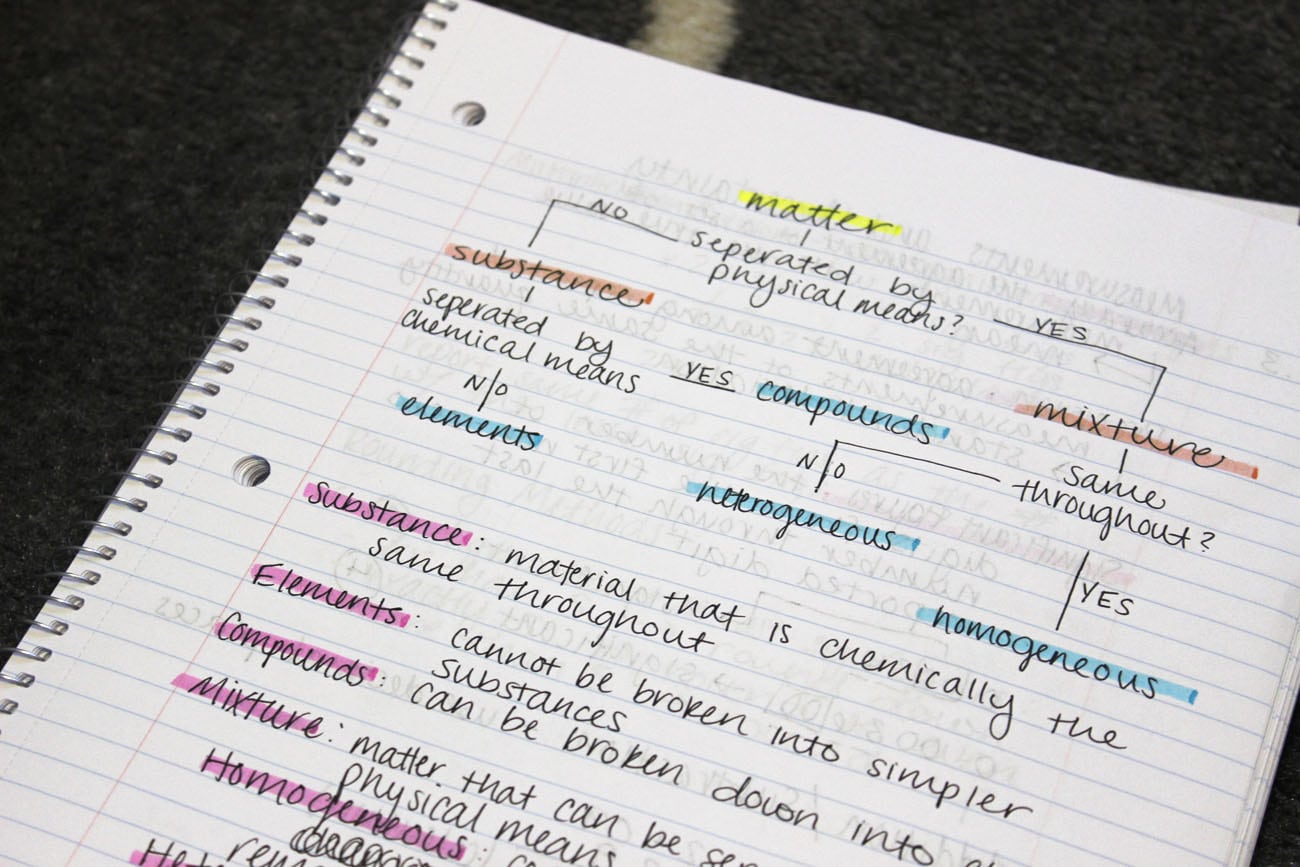 matter
NO
seperated by
physical means?
YES
substance
seperated by
chemical means
YES
compounds
mixture
N/O
elements
same
throughout?
N/O
heterogeneous
YES
homogeneous
Substance: material that is chemically the
same throughout
Elements: cannot be broken into simpler
substances
Compounds: can be broken down into
Mixture: matter that can be
physical means
Homogeneous: